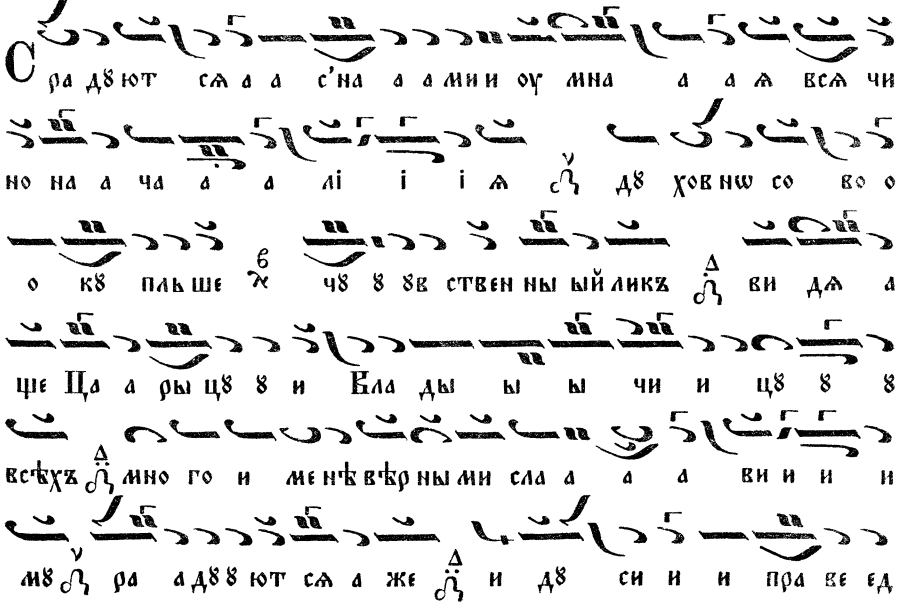 С ра дꙋ ют сѧ а а с'на а а ми и оу мна а а ѧ всѧ чи
но на а ча а а лі і і ѧ дꙋ хов нѡ со во о
о кꙋ пль ше чꙋ ꙋ ꙋв ствен ны ый ликъ ви дѧ а
ще Ца а ры цꙋ ꙋ и Вла ды ы ы чи и цꙋ ꙋ ꙋ
всѣхъ мно го и ме нѣ вѣр ны ми сла а а а ви и и и
мꙋ ра а дꙋ ꙋ ют сѧ а же и дꙋ си и и пра ве ед